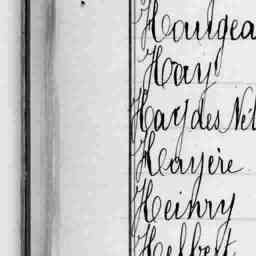 Haulgea
Hay
Hay des Nel
Hayère
Heinry
Helbert